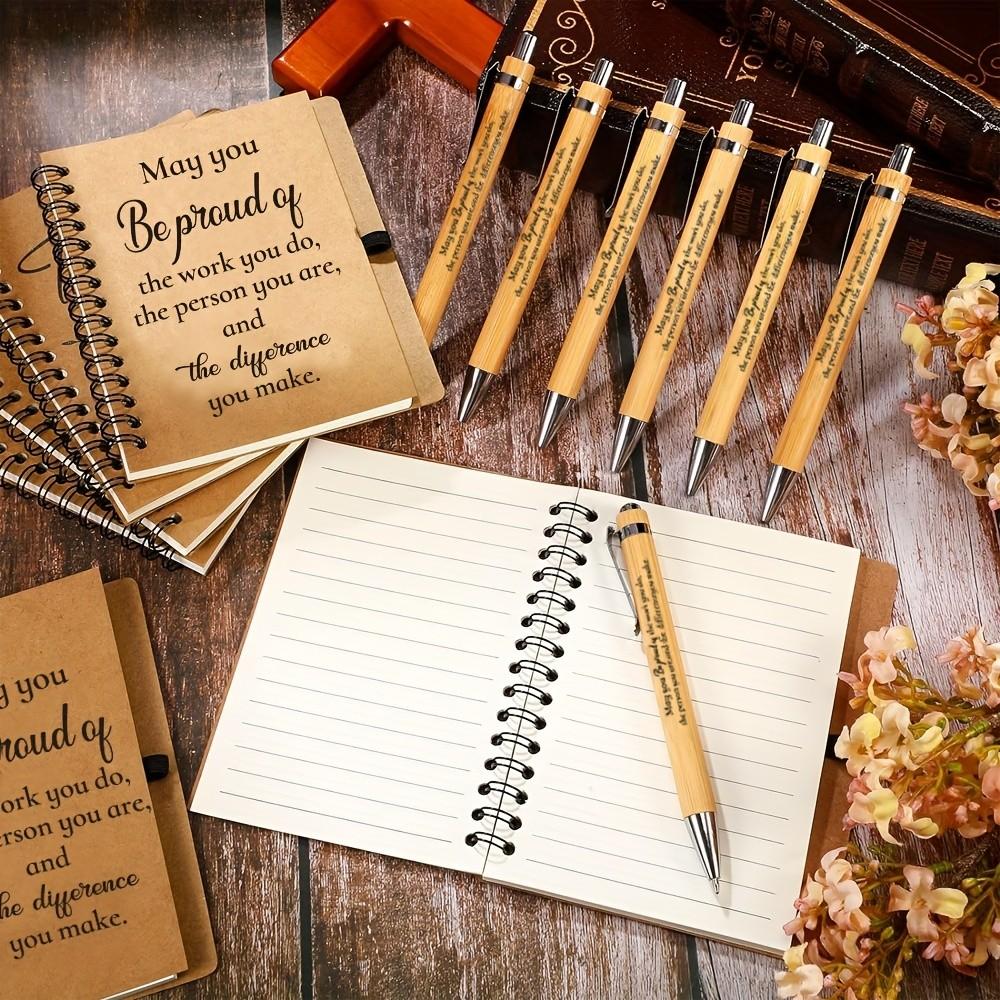 May you
Be proud of
the work you do,
the person you are,
and
the difference
you make.
May you Be proud of the work you do,
the person you are, and the difference you make
May you Be proud of the work you do,
the person you are, and the difference you make
May you Be proud of the work you do,
the person you are, and the difference you make
May you Be proud of the work you do,
the person you are, and the difference you make
May you Be proud of the work you do,
the person you are, and the difference you make
May you Be proud of the work you do,
the person you are, and the difference you make
May you Be proud of the work you do,
the person you are, and the difference you make
y you
roud of
ork you do,
erson you are,
and
he difference
you make.